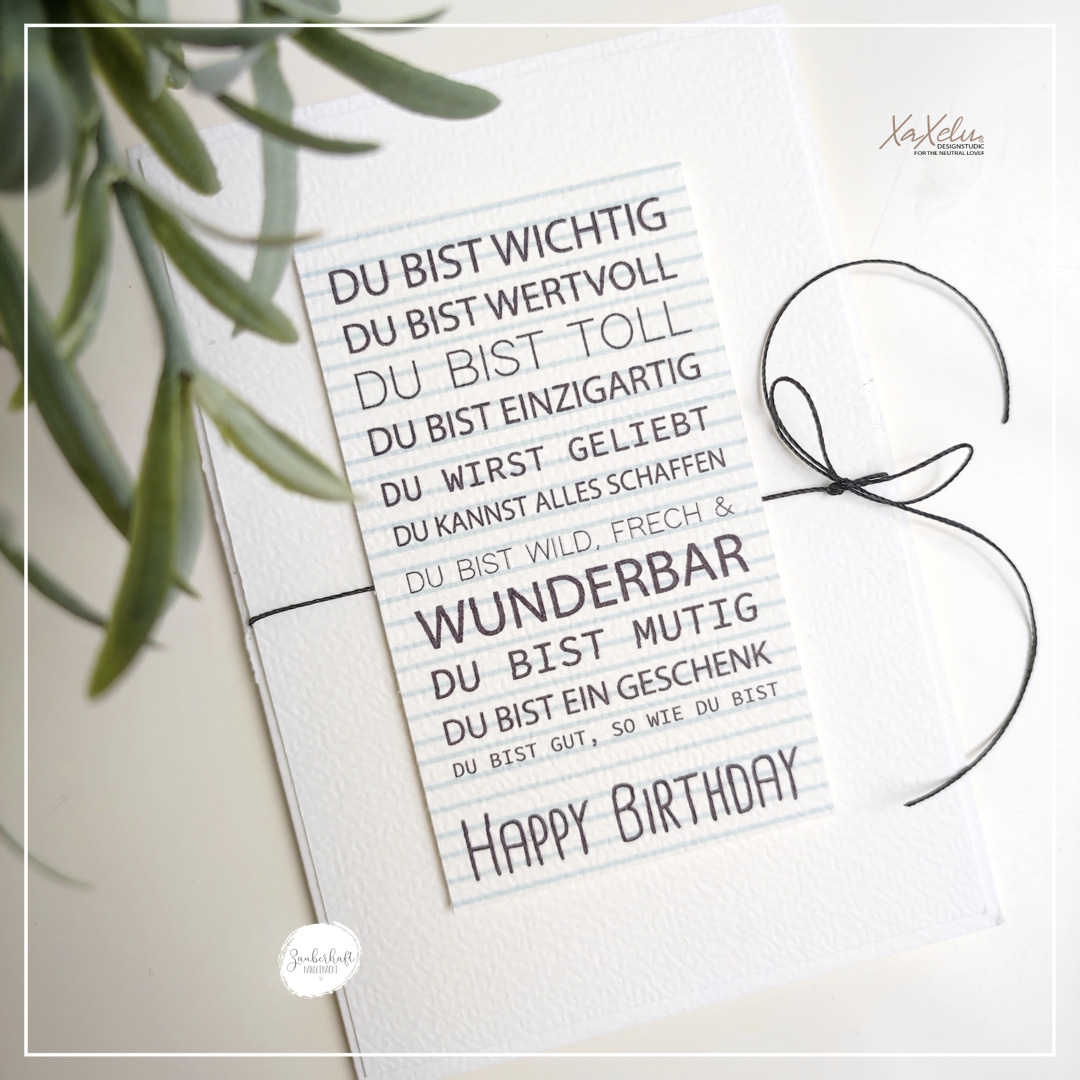 XaXelu
DESIGNSTUDIO
FOR THE NEUTRAL LOVER
DU BIST WICHTIG
DU BIST WERTVOLL
DU BIST TOLL
DU BIST EINZIGARTIG
DU WIRST GELIEBT
DU KANNST ALLES SCHAFFEN
DU BIST WILD, FRECH &
WUNDERBAR
DU BIST MUTIG
DU BIST EIN GESCHENK
DU BIST GUT, SO WIE DU BIST
HAPPY BIRTHDAY
Zauberhaft
HANDGEMACHT